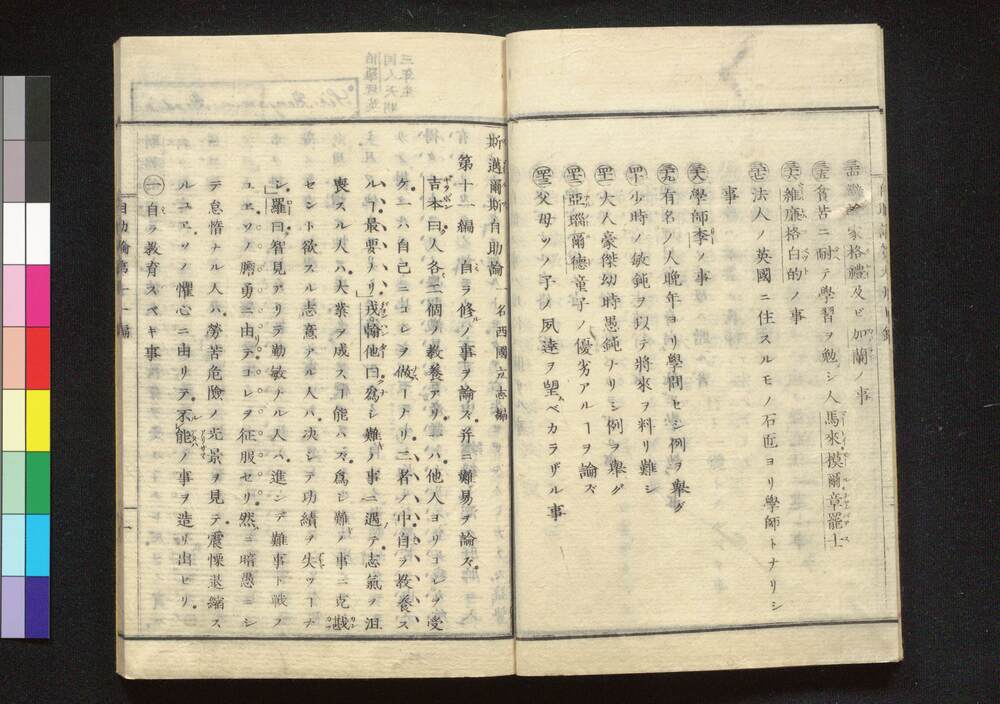 家格禮及ビ加蘭ノ事
貧苦ニ耐テ學習ヲ勉シ人馬來模爾章罷士
維廉格白的ノ事
法人ノ英國ニ住スルモノ石匠ヨリ學師トナリシ
事
學師李ノ事
有名ノ人晩年ヨリ學問セシ例ヲ舉グ
少時ノ敏鈍ヲ以テ將來ヲ料リ難シ
大人豪傑幼時愚鈍ナリシ例ヲ舉グ
亞瑙爾德童子ノ優劣アルヿヲ論ズ
父母ソノ子ノ夙達ヲ望ムベカラザル事
斯邁爾斯自助論 名西國立志編
第十一編 自ラ修ルノ事ヲ論ズ并ニ難易ヲ論ズ
吉本曰人各二個ノ教養アリ一ハ他人ヨリコレヲ受
ケ一ハ自己ニコレヲ做ナリ二者ノ中自ラ教養ス
ルヿ最要ナリ戎翰他曰爲シ難キノ事ニ遇テ志氣ヲ沮
喪スル人ハ大業ヲ成スヿ能ハズ爲シ難キノ事ニ克戡
セント欲スル志意アル人ハ决シテ功績ヲ失フヿナ
シ羅曰智見アリテ勤敏ナル人ハ進ンデ難事ト戰フ
ユヱソノ膽勇ニ由リテコレヲ征服セリ然ルニ暗愚ニシ
テ怠惰ナル人ハ勞苦危險ノ光景ヲ見テ震慄退縮ス
ルユヱソノ懼心ニ由リテ不能ノ事ヲ造リ出セリ
㊀自ラ教育スベキ事
自助論第十一編
一